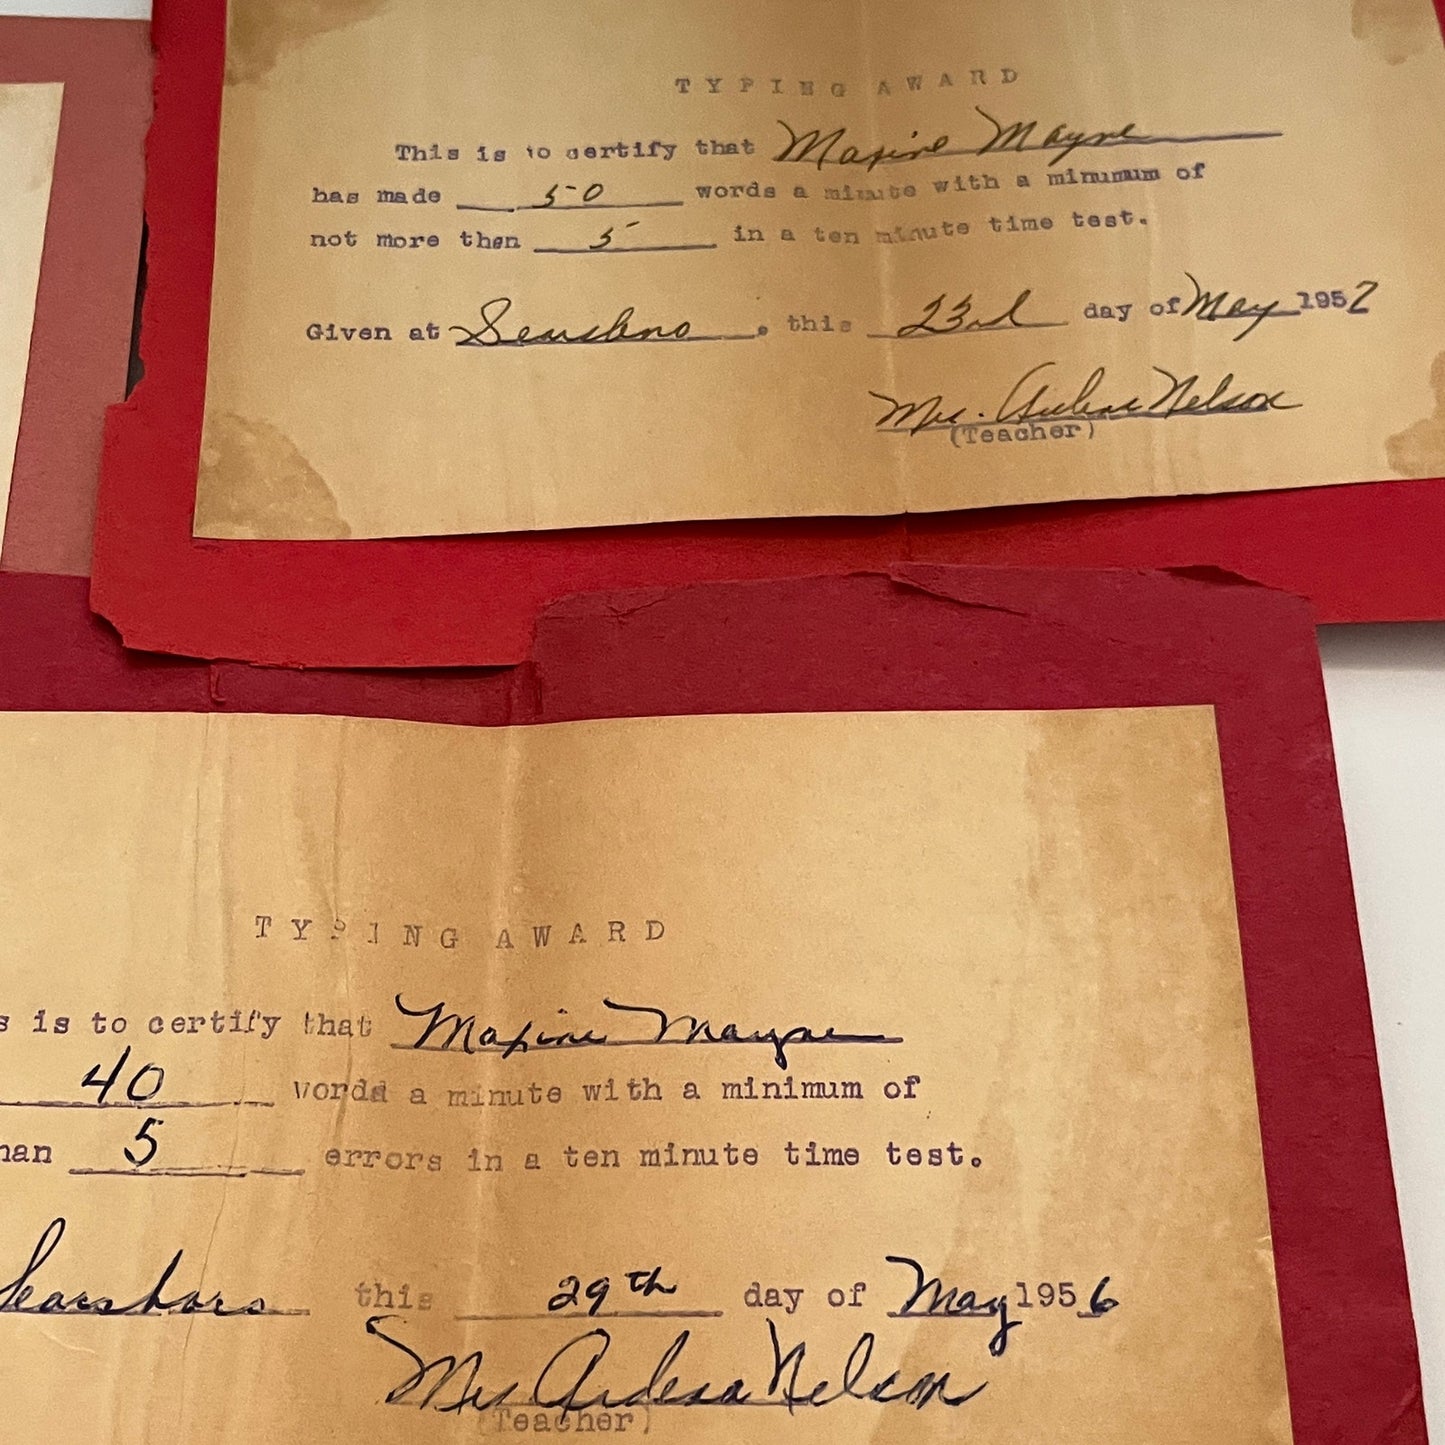 TYPING AWARD
This is to certify that Maxine Mayne
has made 50 words a minute with a minumum of
not more then 5 in a ten minute time test.
Given at Searsboro, this 23rd day of May 1957
Mrs. Ardena Nelson
(Teacher)
TYPING AWARD
s is to certify that Maxine Mayne
40 words a minute with a minimum of
han 5 errors in a ten minute time test.
Searsboro this 29th day of May 1956
Mrs Ardena Nelson
(Teacher)